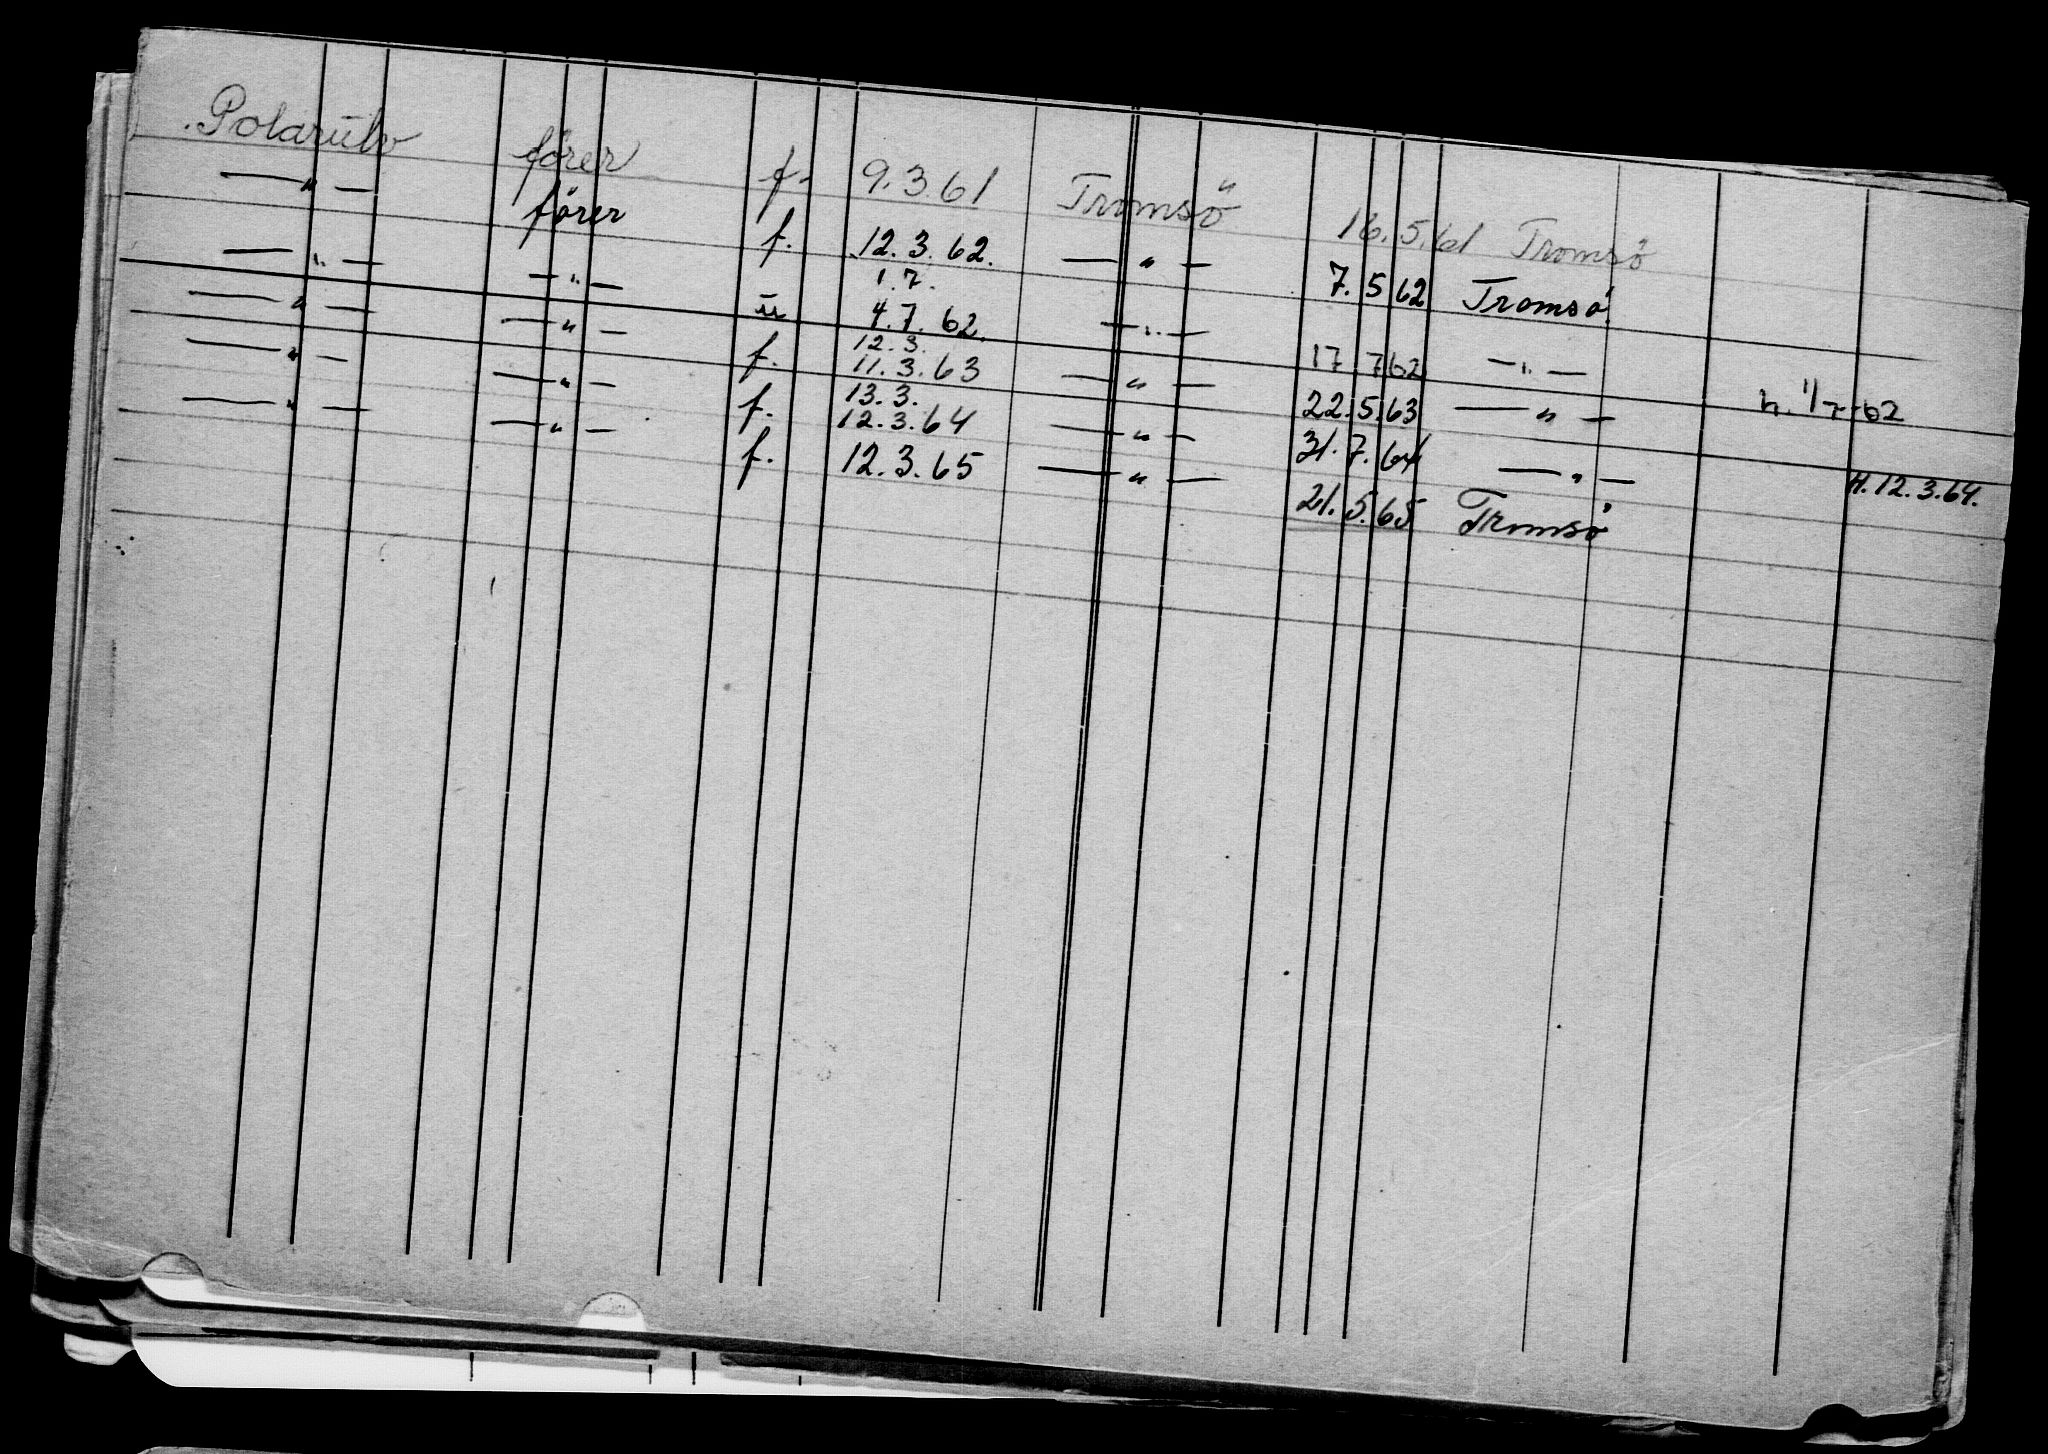 Polarulv förer f. 9.3.61 Tromsö 16.5.61 Tromsö
— " — förer f. 12.3.62. — " — 7.5.62 Tromsö
— " — — " — ü 1.7. 4.7.62. — " — 17.7.62 — " — h. 1/7-62
— " — — " — f. 12.3. 11.3.63 — " — 22.5.63 — " —
— " — — " — f. 13.3. 12.3.64 — " — 31.7.64 — " — H.12.3.64.
— " — — " — f. 12.3.65 — " — 21.5.65 Tromsö